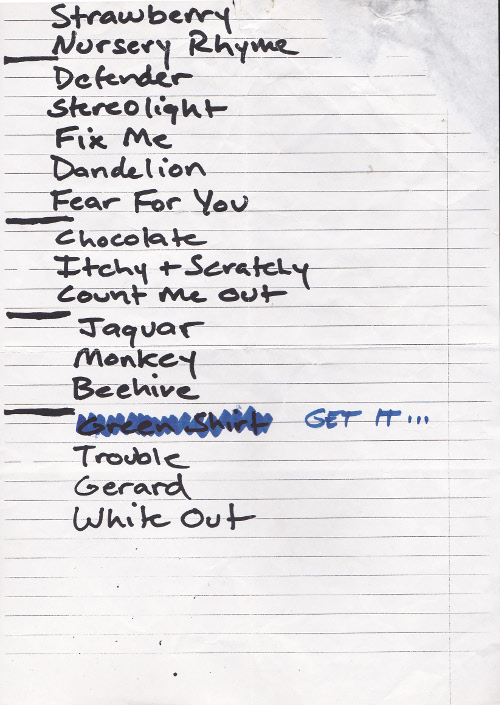 Strawberry
Nursery Rhyme
Defender
Stereolight
Fix Me
Dandelion
Fear For You
Chocolate
Itchy + Scratchy
Count Me Out
Jaguar
Monkey
Beehive
Green Shirt GET IT...
Trouble
Gerard
White Out